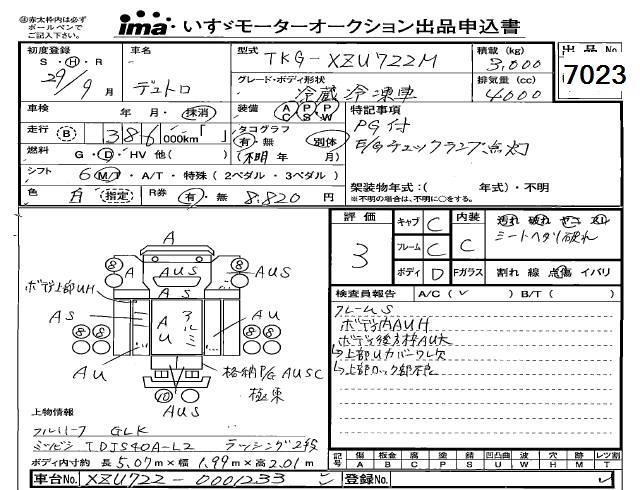 ④赤太枠内は必ず
ボールペンで
ご記入下さい。
ima いすゞモーターオークション出品申込書
初度登録 S・H・R 29/9月
車名 デュトロ
型式 TKG-XZU722M
積載(kg) 3,000
出品No 7023
グレード・ボディ形状 冷蔵冷凍車
排気量(cc) 4000
車検 年 月・抹消
装備 AC PS PW
特記事項
PG付
E/Gチェックランプ点灯
走行 B 386,000km「 」
タコグラフ 有・無 別体
(不明年 月)
燃料 G・D・HV 他( )
シフト 6 M/T・A/T・特殊(2ペダル・3ペダル)
色 白 指定 R券 有・無 8,820円
架装物年式:( 年式)・不明
※不明の場合は、不明に○をする。
評価 3
キャブ C 内装 C
フレーム C
シートヘタリ破れ
ボディ D Fガラス 割れ 線 点傷 イバリ
検査員報告 A/C(✓) B/T( )
フレームS
ボディ内AUH
ボディ後方枠AU大
↳上部Uカバーワレ欠
↳上部ロック部不良
A
8 A AUS AUS 8
ボディ上部UH A S
AS A アルミ AU
8 8 U 8 8
AU
格納P/G AUSC
10 極東
AUS
上物情報
GLK
ミツビシ TDJS40A-L2 ラッシング2段
ボディ内寸約 長5.07m×幅1.99m×高2.01m
記号 傷A 板金B 腐C 塗P 錆S 凹凸曲U 波W 穴H 跡M レンズ割T
車台No. XZU722-0001233 登録No.